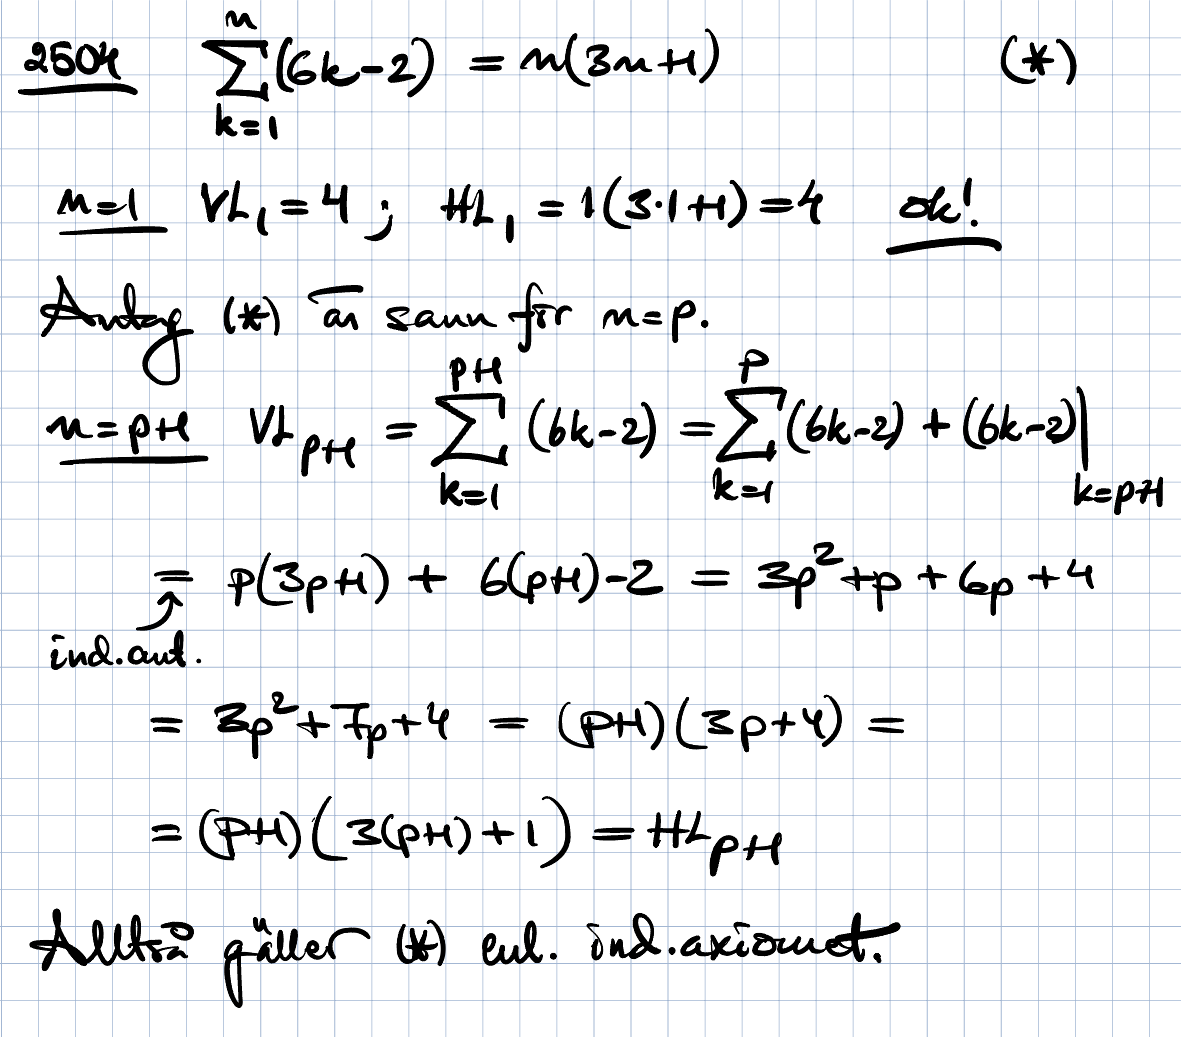 2504 $\sum_{k=1}^{n}(6k-2) = n(3n+1)$ (*)
n=1 VL₁ = 4 ; HL₁ = 1(3·1+1) = 4 ok!
Antag (*) är sann för n=p.
n=p+1 $VL_{p+1} = \sum_{k=1}^{p+1}(6k-2) = \sum_{k=1}^{p}(6k-2) + (6k-2)|_{k=p+1}$
= p(3p+1) + 6(p+1)-2 = 3p²+p+6p+4
ind.ant.
= 3p²+7p+4 = (p+1)(3p+4) =
= (p+1)(3(p+1)+1) = $HL_{p+1}$
Alltså gäller (*) enl. ind.axiomet.